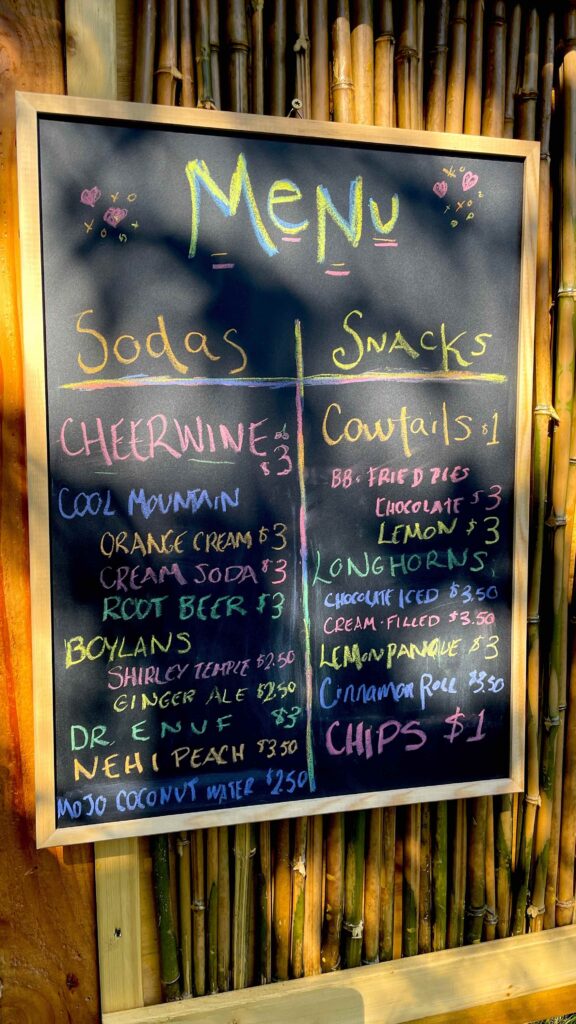 MeNu
Sodas
CHEERWINE $3
COOL MOUNTAIN
ORANGE CREAM $3
CREAM SODA $3
ROOT BEER $3
BOYLANS
SHIRLEY TEMPLE $2.50
GINGER ALE $2.50
DR. ENUF $3
NEHI PEACH $3.50
MOJO COCONUT WATER $2.50
SNACKS
Cowtails $1
BB. FRIED PIES
CHOCOLATE $3
LEMON $3
LONGHORNS
CHOCOLATE ICED $3.50
CREAM-FILLED $3.50
LEMON PANQUE $3
Cinnamon Roll $3.50
CHIPS $1